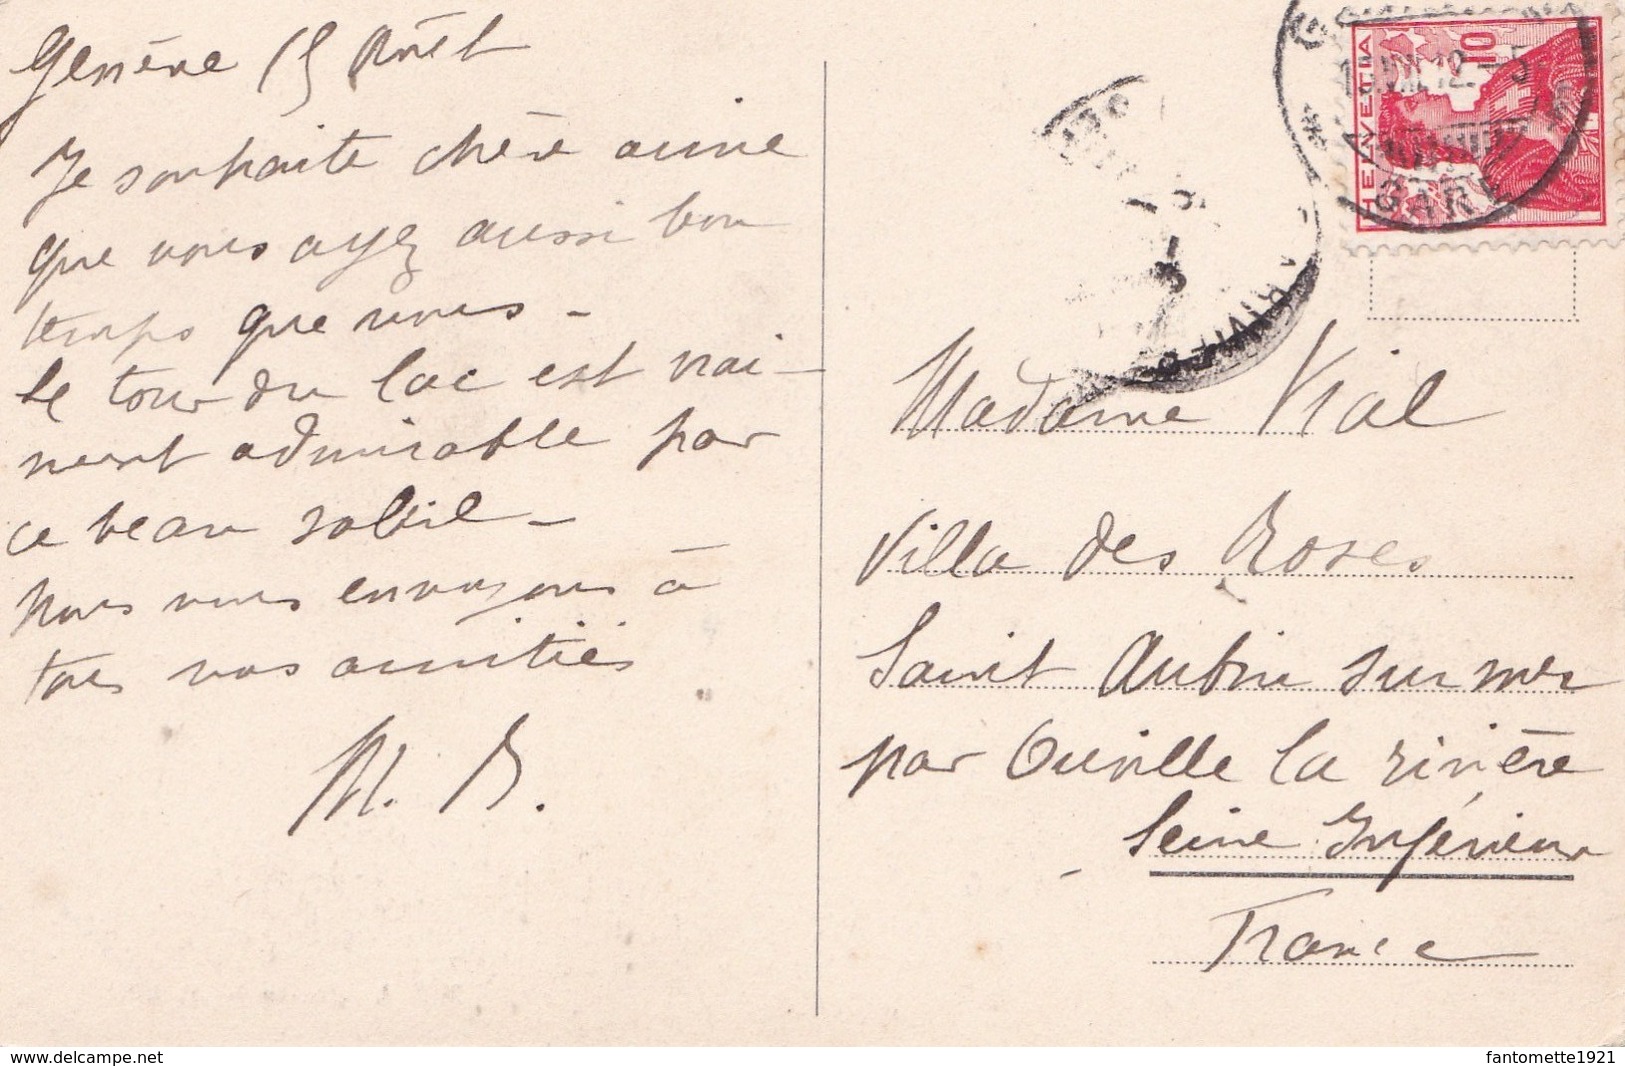 Genève 15 Août
Je souhaite chère amie
que vous ayez aussi bon
temps que nous -
le tour du lac est vrai-
ment admirable par
ce beau soleil -
Nous vous envoyons à
tous nos amitiés
M. B.
HELVETIA
10
GARE
Madame Vial
Villa des Roses
Saint Aubin sur mer
par Ouville la rivière
Seine Inférieure
France
www.delcampe.net
fantomette1921